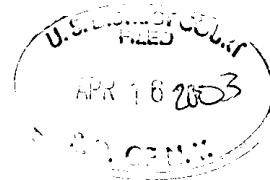 U.S. DISTRICT COURT
FILED
APR 16 2003
S.D. OF N.Y.